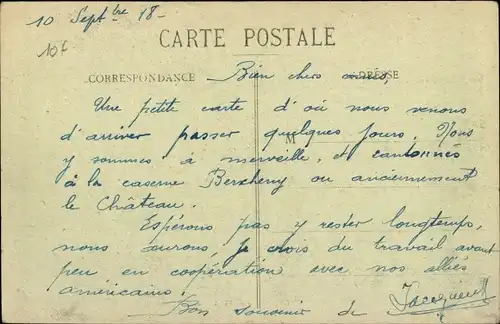 10 Septbre 18-
10f
CARTE POSTALE
CORRESPONDANCE
ADRESSE
M
Bien chers amis,
Une petite carte d'où nous venons
d'arriver passer quelques jours. Nous
y sommes à merveille, et cantonnés
à la caserne Bercheny ou anciennement
le Château.
Espérons pas y rester longtemps,
nous aurons, je crois du travail avant
peu en coopération avec nos alliés
américains.
Bon souvenir de